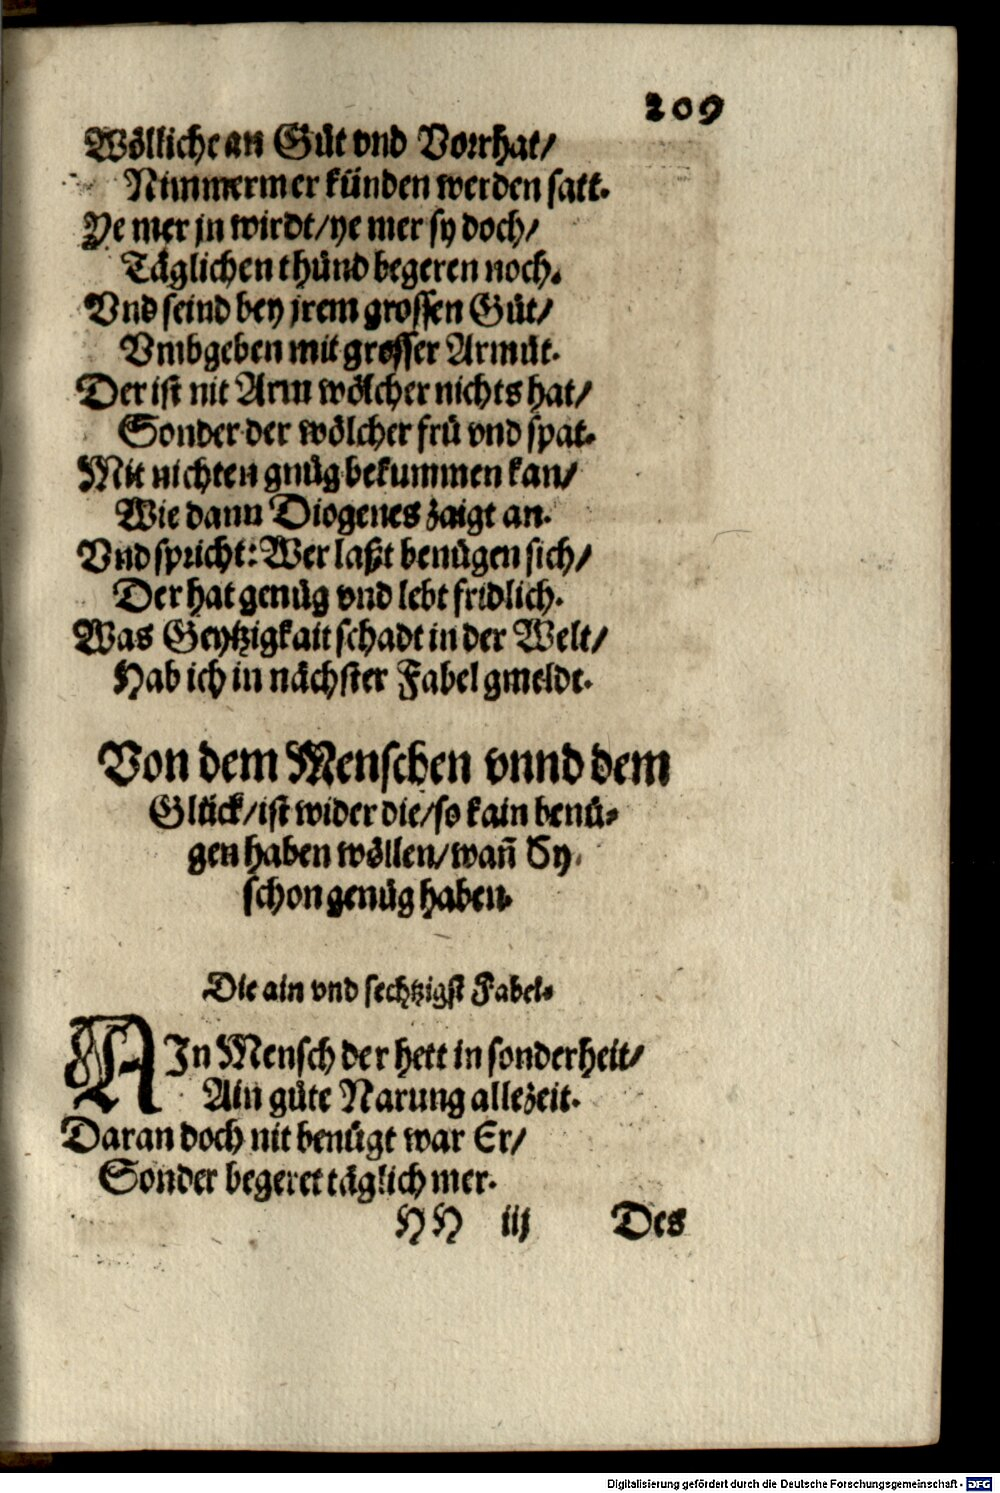 209
Wölliche an Gůt vnd Vorrhat/
Nimmermer künden werden satt.
Ye mer jn wirdt/ye mer sy doch/
Täglichen thůnd begeren noch.
Vnd seind bey jrem grossen Gůt/
Vmbgeben mit grosser Armůt.
Der ist nit Arm wölcher nichts hat/
Sonder der wölcher frů vnd spat.
Mit nichten gnůg bekummen kan/
Wie dann Diogenes zaigt an.
Vnd spricht: Wer laßt benůgen sich/
Der hat genůg vnd lebt fridlich.
Was Geytzigkait schadt in der Welt/
Hab ich in nächster Fabel gmeldt.
Von dem Menschen vnnd dem
Glück/ist wider die/so kain benů-
gen haben wöllen/wañ Sy
schon genůg haben.
Die ain vnd sechtzigst Fabel.
AIn Mensch der hett in sonderheit/
Ain gůte Narung allezeit.
Daran doch nit benůgt war Er/
Sonder begeret täglich mer.
HH iij Des
Digitalisierung gefördert durch die Deutsche Forschungsgemeinschaft - DFG